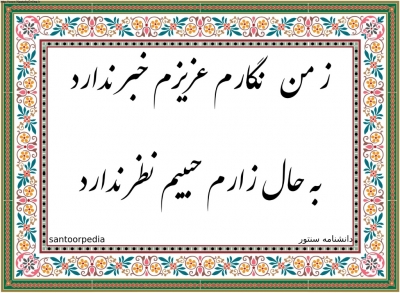 ز من نگارم عزیزم خبر ندارد
به حال زارم حبیبم نظر ندارد
santoorpedia
دانشنامه سنتور